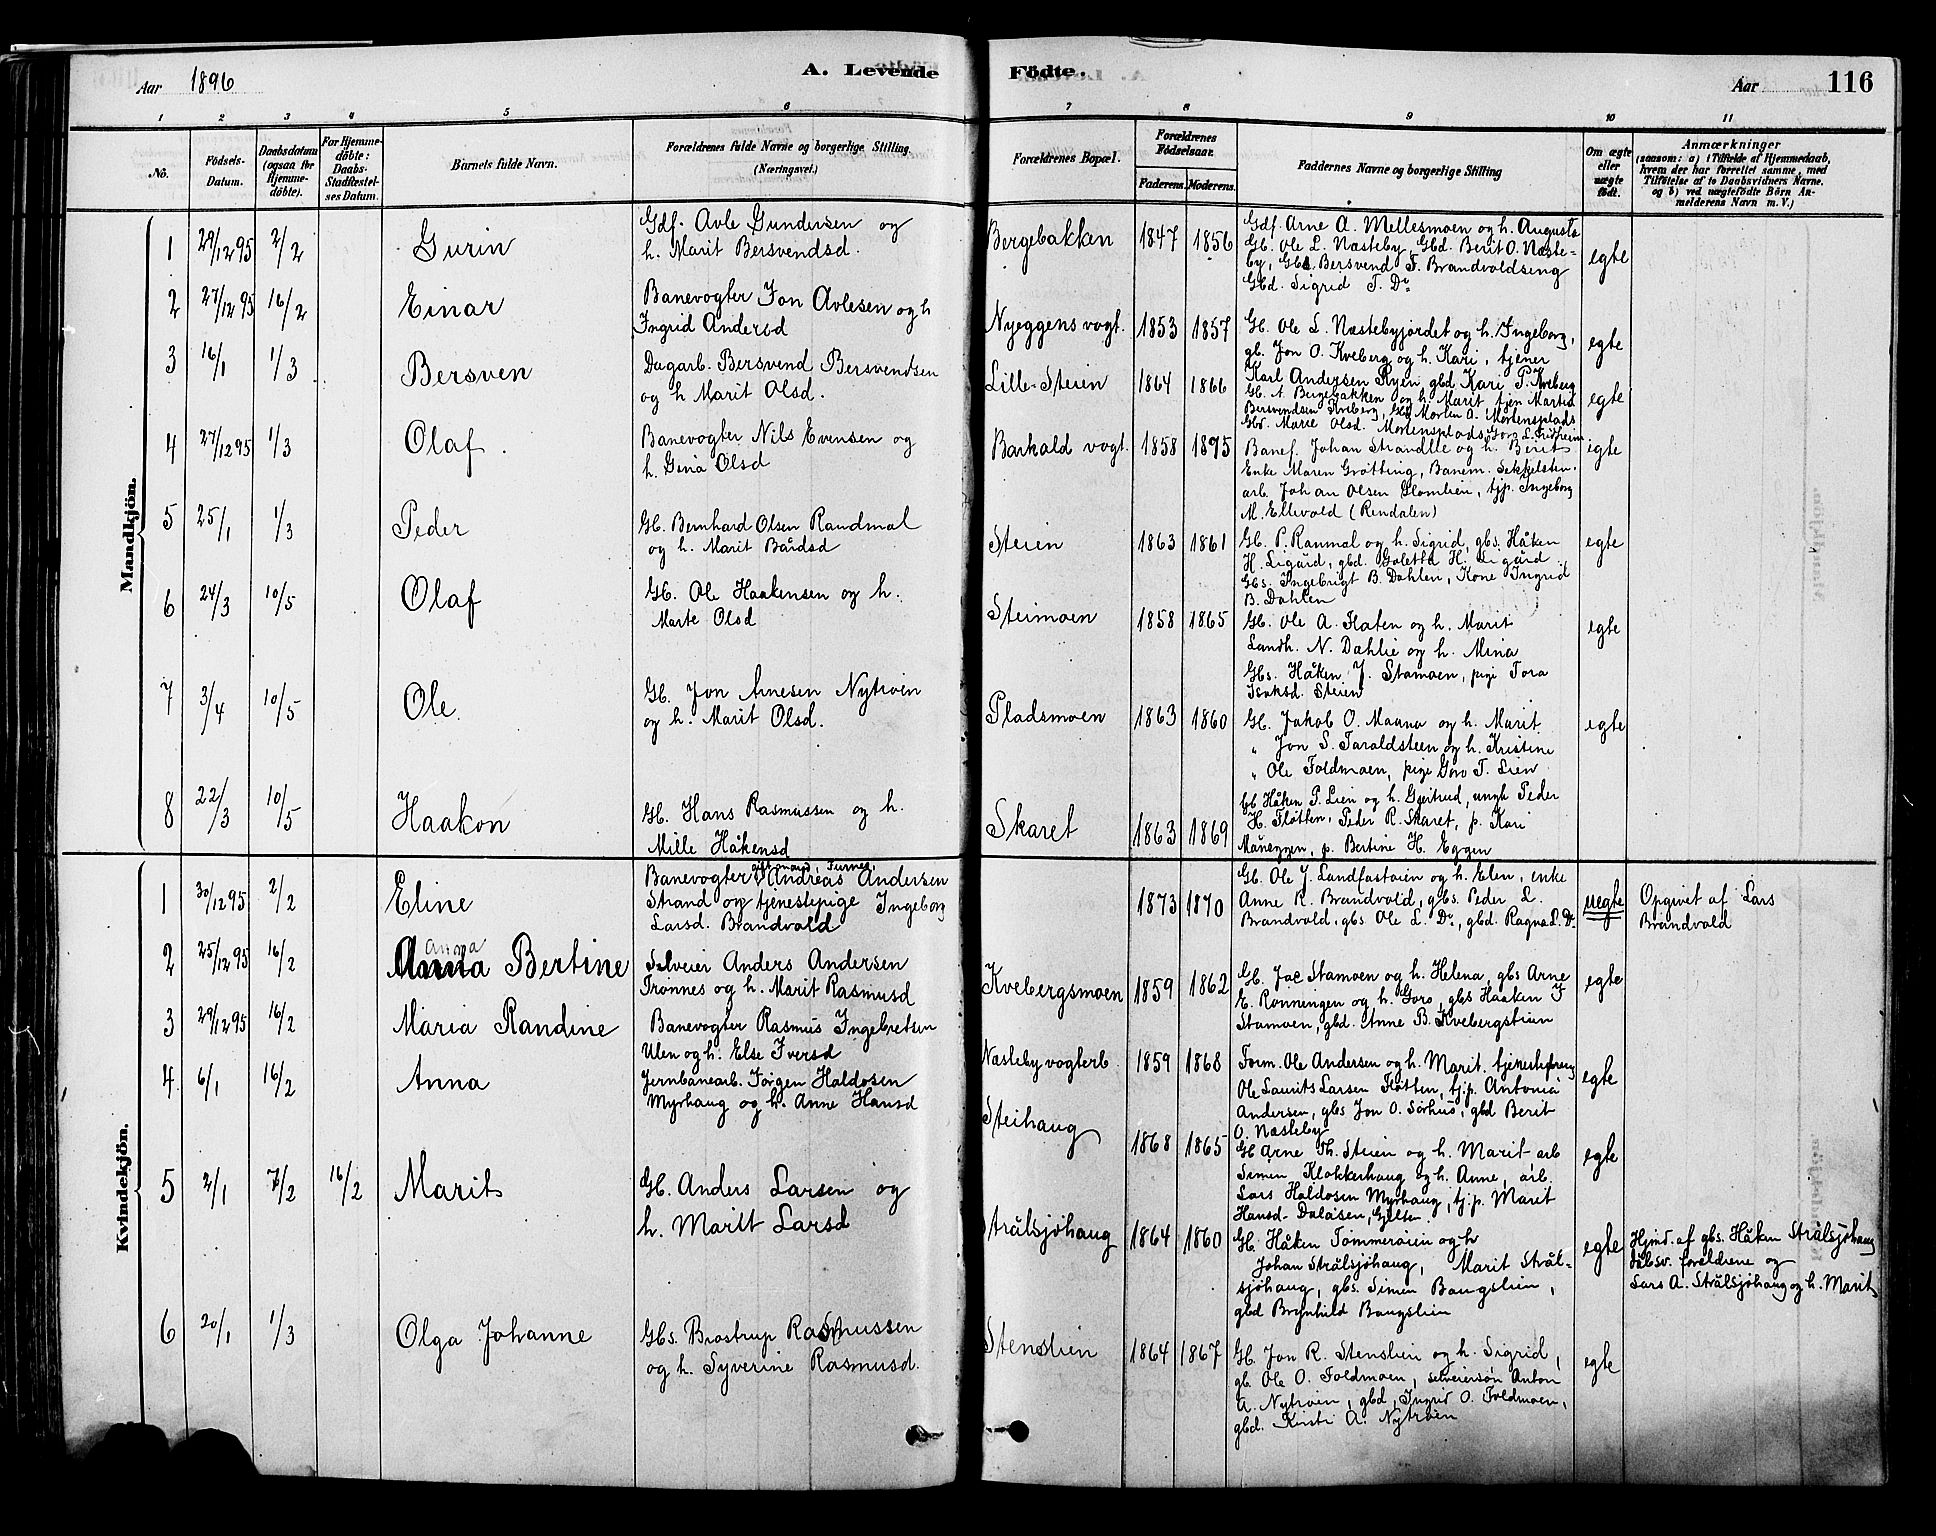 Aar 1896
A. Levende Födte.
Aar 116
1 2 3 4 5 6 7 8 9 10 11
No.
Födsels-Datum.
Daabsdatum (ogsaa for Hjemme-döbte).
For Hjemme-döbte: Daabs-Stadfæstel-ses Datum.
Barnets fulde Navn.
Forældrenes fulde Navne og borgerlige Stilling (Næringsvei.)
Forældrenes Bopæl.
Forældrenes Födselsaar.
Faderens. Moderens.
Faddernes Navne og borgerlige Stilling
Om ægte eller uægte födt.
Anmærkninger
(saasom: a) i Tilfælde af Hjemmedaab,
hvem der har forrettet samme, med
Tilföielse af to Daabsvidners Navne.
og b) ved uægtefödte Börn An-
melderens Navn m. V.)
Mandkjön.
1 29/12 95 2/2 Gurin
Gdf. Avle Gundersen og
h. Marit Bersvendsd.
Bergebakken 1847 1856
Gdf. Arne A. Mellesmoen og h. Augusta
Gb. Ole L. Næsteby, Gbd. Berit O. Næste-
by, Gbs. Bersvend T. Brandvoldseng
Gbd. Sigrid T. Do
egte
2 27/12 95 16/2 Einar
Banevogter Jon Avlesen og h
Ingrid Andersd
Nyeggens vogt. 1853 1857
Gb. Ole L. Næstebyjordet og h. Ingeborg,
gb. Jon O. Kveberg og h. Kari, tjener
Karl Andersen Ryen, gbd Kari P. Kveberg
egte
3 16/1 1/3 Bersven
Dagarb. Bersvend Bersvendsen
og h Marit Olsd.
Lille-Steien 1864 1866
Gb. A. Bergebakken og h. Marit, tjen Martin
Bersvendsen Kveberg, Gbs Morten A. Mortensplads
Gbd. Marie Olsd. Mortensplads,
egte
4 27/12 95 1/3 Olaf.
Banevogter Nils Evensen og
h. Gina Olsd
Barkald vogt. 1858 1895
Banef. Johan Strandlie og h. Berit
Enke Maren Grötting, Banem.
arb. Johan Olsen Glomlien, tjp. Ingeborg
M. Ellevold (Rendalen)
egte
5 25/1 1/3 Peder
Gb. Bernhard Olsen Randmal
og h. Marit Bårdsd
Steien 1863 1861
Gb. P. Ranmal og h. Sigrid, gbs. Håken
H. Ligård, gbd. Goletta H. Ligård
Gbs. Ingebrigt B. Dahlen, Kone Ingrid
B. Dahlen
egte
6 24/3 10/5 Olaf
Gb. Ole Haakensen og h.
Marte Olsd
Steimoen 1858 1865
Gb. Ole A. Flaten og h. Marit
Landh. N. Dahlie og h. Mina
Gbs. Håken J. Stamoen, pige Tora
Isaksd. Steien
egte
7 3/4 10/5 Ole.
Gb. Jon Arnesen Nytröen
og h. Marit Olsd.
Pladsmoen 1863 1860
Gb. Jakob O. Maana og h. Marit
" Jon S. Taraldsteen og h. Kristine
" Ole Foldmoen, pige Goro T. Lien
egte
8 22/3 10/5 Haakon
Gb. Hans Rasmussen og h.
Mille Håkensd
Skaret 1863 1869
Gb Håken P. Lien og h. Gjertrud, ungk Peder
H. Flötten, Peder R. Skaret, p. Kari
Måneggen, p. Bertine H. Eggen
Kvindekjön.
1 30/12 95 2/2 Eline
gift mand, Furnes,
Banevogter Andreas Andersen
Strand og tjenestepige Ingeborg
Larsd. Brandvold
1873 1870
Gb. Ole J. Landfastöien og h. Elen, enke
Anne R. Brandvold, gbs. Peder L.
Brandvold, gbs Ole L. Do, gbd. Ragna L. Do
uegte
Opgivet af Lars
Brandvold
2 25/12 95 16/2 Anna
Anna Bertine
Selveier Anders Andersen
Trönnes og h. Marit Rasmusd
Kvebergsmoen 1859 1862
Gb. Jac Stamoen og h. Helena, gbs Arne
E. Rönningen og h. Goro, gbs Haaken J
Stamoen, gbd. Anne B. Kvebergstien
egte
3 29/12 95 16/2 Maria Randine
Banevogter Rasmus Ingebretsen
Ulen og h. Else Iversd
Næsteby vogterb. 1859 1868
Form. Ole Andersen og h. Marit, tjenestedreng
Ole Laurits Larsen Flötten, tj.p. Antonia
Andersen, gbs Jon O. Sörhus, gbd Berit
O. Næsteby
egte
4 6/1 16/2 Anna
Jernbanearb. Jörgen Haldosen
Myrhaug og h. Anne Hansd
Steihaug 1868 1865
Gb Arne Th. Steien og h. Marit, arb
Simen Klokkerhaug og h. Anne, arb.
Lars Haldosen Myrhaug, tj.p. Marit
Hansd-Dalåsen,
egte
5 2/1 7/2 16/2 Marit
Gb. Anders Larsen og
h. Maritt Larsd
Strålsjöhaug 1864 1860
Gb. Håken Tommeröien og h
Johan Strålsjöhaug, Marit Strål-
sjöhaug, gbs. Simen Baugslien,
gbd Brynhild Baugslien
egte
Hjmd. af gbs. Håken Strålsjöhaug
Dåbsv. foreldrene og
Lars A. Strålsjöhaug og h. Marit
6 20/1 1/3 Olga Johanne
Gbs. Brostrup Rasmussen
og h. Syverine Rasmusd.
Stenslien 1864 1867
Gb. Jon R. Stenslien og h. Sigrid,
gb. Ole O. Foldmoen, selveiersön Anton
A. Nytröen, gbd, Ingrid O. Foldmoen,
gbd. Kirsti A. Nytröen
egte